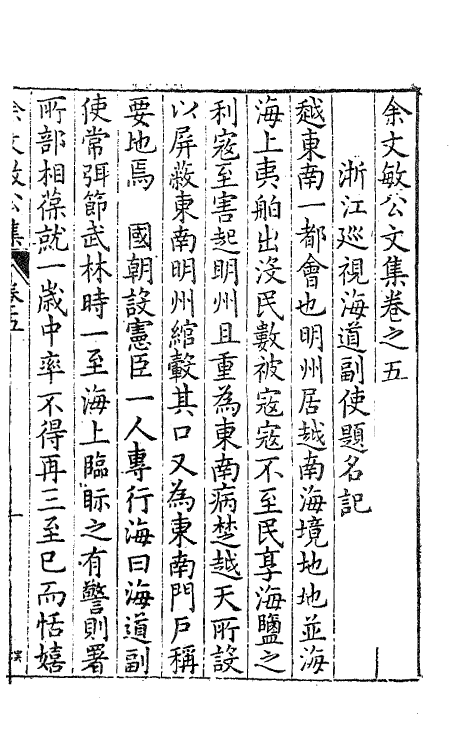 余文敏公文集卷之五
浙江巡視海道副使題名記
越東南一都會也明州居越南海境地地並海
海上夷舶出沒民數被寇寇不至民享海鹽之
利寇至害起明州且重為東南病楚越天所設
以屏蔽東南明州綰轂其口又為東南門戶稱
要地焉 國朝設憲臣一人專行海曰海道副
使常弭節武林時一至海上臨眎之有警則署
所部相葆就一歲中率不得再三至已而恬嬉
余文敏公集 卷五 一